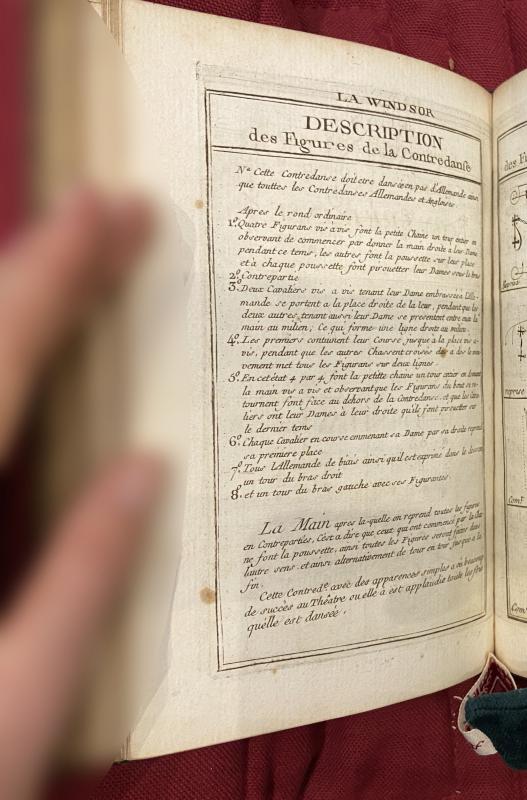 LA WINDSOR
DESCRIPTION
des Figures de la Contredanse
Na Cette Contredanse doit etre dansée en pas d'Allemande ainsi
que touttes les Contredanses Allemandes et Angloises.
Apres le rond ordinaire
1º. Quatre Figurans vis a vis font la petite Chaine un tour entier en
observant de commencer par donner la main droite a leur Dame
pendant ce tems, les autres font la poussette sur leur place
et à chaque poussette font pirouetter leur Dames sous le bras
2º. Contrepartie
3º. Deux Cavaliers vis a vis tenant leur Dame embrassée à l'Alle-
mande se portent a la place droite de la leur, pendant que les
deux autres, tenant aussi leur Dame se presentent entre eux la
main au milieu; Ce qui forme une ligne droite au milieu.
4º. Les premiers continuent leur Course jusque à la place vis a-
vis, pendant que les autres Chassent croisés dos a dos le mou
vement met tous les Figurans sur deux lignes.
5º. En cet état 4 par 4, font la petitte chaine un tour entier en donnant
la main vis a vis et observant que les Figurans du bout se re-
tournent font face au dehors de la Contredanse, et que les Cava-
liers ont leur Dames à leur droite qu'ils font pirouetter sur
le dernier tems
6º. Chaque Cavalier en course emmenant sa Dame par sa droite reprend
sa premiere place
7º. Tous l'Allemande de biais ainsi qu'il est exprimé dans le dessein
un tour du bras droit
8º. et un tour du bras gauche avec ses Figurantes.
La Main apres la-quelle on reprend toutes les figures
en Contreparties, C'est a dire que ceux qui ont commencé par la Chaine
ne font la poussette, ainsi toutes les Figures seront faites dans
l'autre sens, et ainsi alternativement de tour en tour jusque à la
fin.
Cette Contrede. avec des apparences simples a eu beaucoup
de succès au Théatre ou elle a est applaudie toute les fois
qu'elle est dansée.
des Fi
reprise
Contr